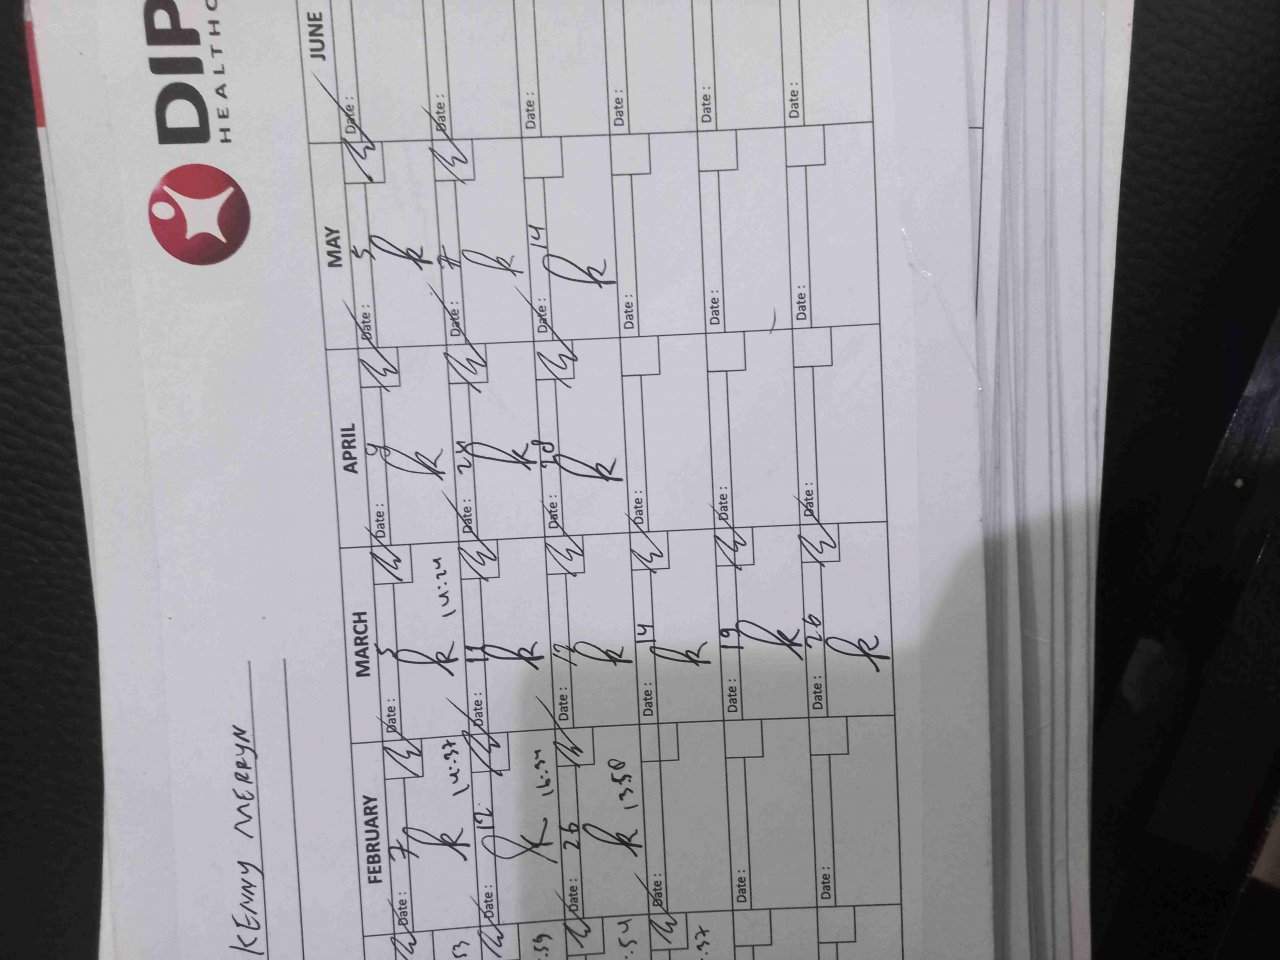 DIP
HEALTHC
KENNY MERRYN
FEBRUARY MARCH APRIL MAY JUNE
Date: 7 Date: 5 Date: 9 Date: 5 Date:
k 14:37 k 14:24 k k
Date: 12 Date: 11 Date: 24 Date: 7 Date:
k 16:34 k k k
Date: 26 Date: 12 Date: 28 Date: 14 Date:
k 1358 k k k
Date: Date: 14 Date: Date: Date:
k
Date: Date: 19 Date: Date: Date:
k
Date: Date: 26 Date: Date: Date:
k
53
.59
.54
.37